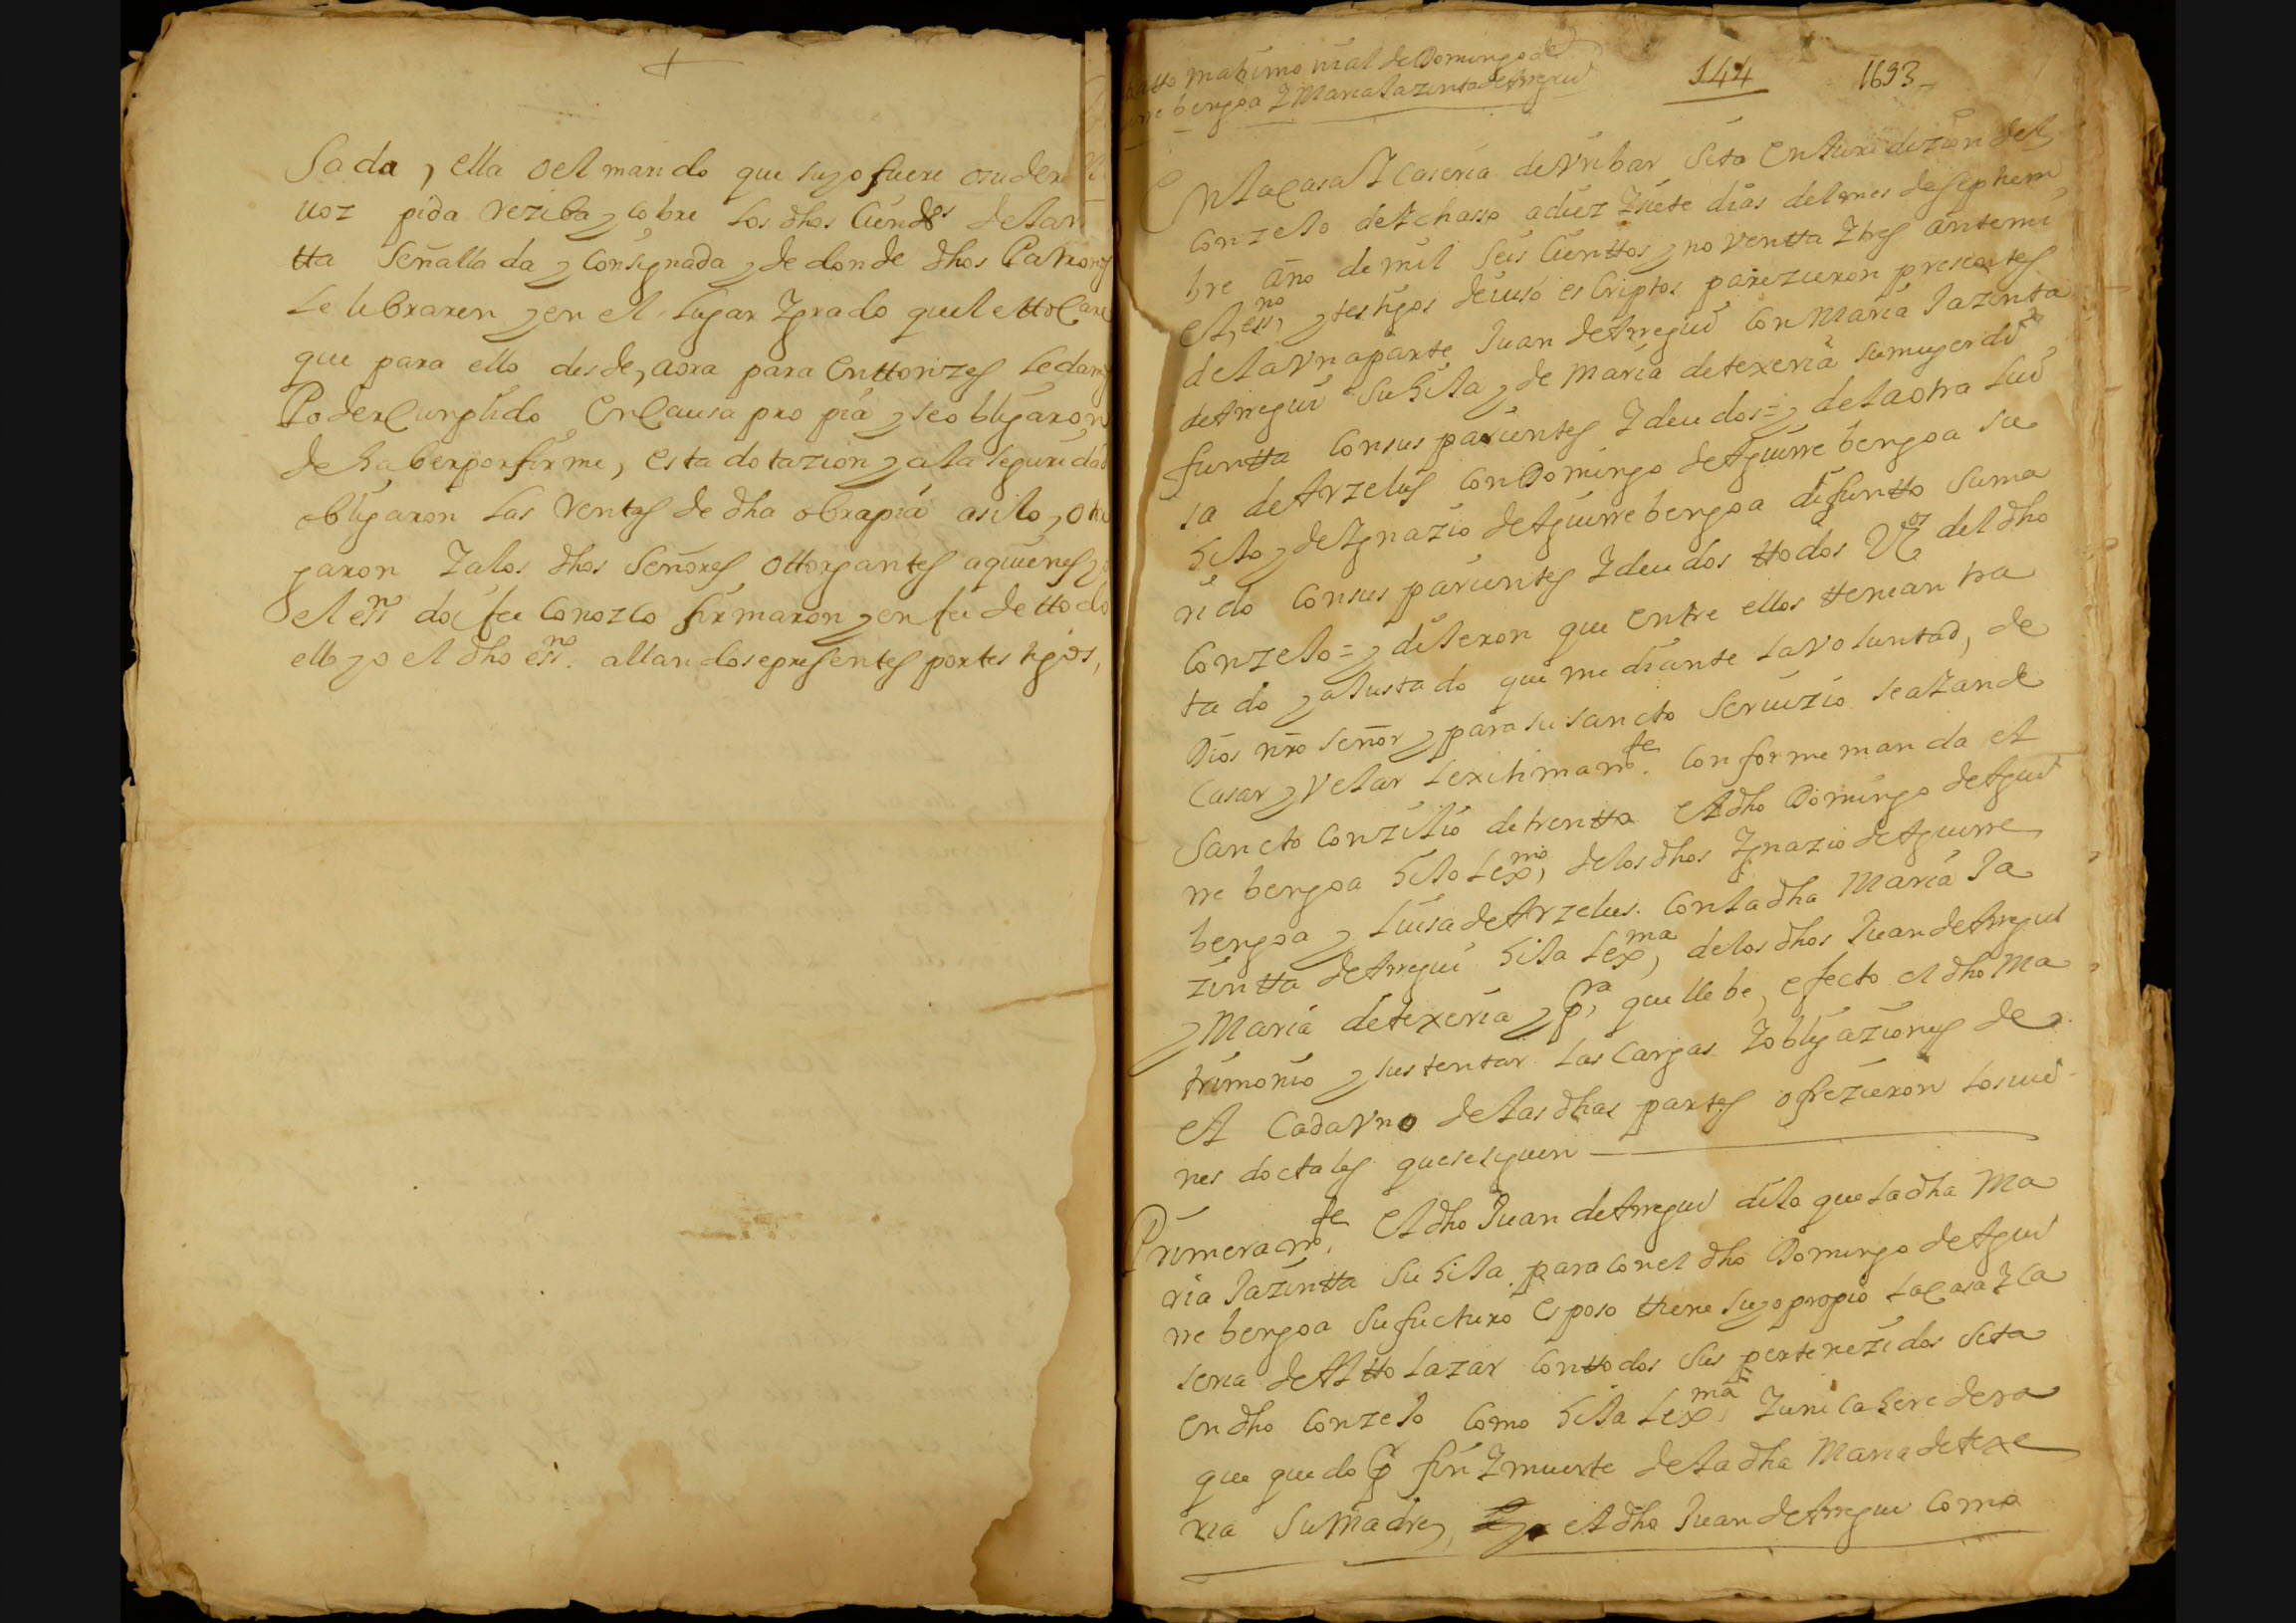 sada, ella o el marido que suyo fuere o su poder
uoz pida reziba y cobre los dhos cien ds de la ren
tta señallada y consignada y de donde dhos Patrones
le libraren y en el lugar y grado que le ttocare
que para ello desde, aora para enttonzes le damos
Poder cunplido en causa propia y se obligaron
de haber por firme, esta dotazion y a la seguridad
obligaron las rentas de dha obra pia asi lo, otor
garon y a los dhos señores ottorgantes a quienes yo
el essno doi fee conozco firmaron y en fee de ttodo
ello yo el dho essno. allandose presentes por testigos,
matrimonial de Domingo de
bengoa y Maria Jazinta de Arregui
144 1693
En la casa y caseria de Vribar sita en Jurisdizion del
conzejo de Ichasso a diez y siete dias del mes de septiem
bre año de mil seis cienttos y noventta y tres ante mi
el, essno, y testigos de iuso escriptos parezieron presentes
de la vna parte Juan de Arregui con Maria Jazinta
de Arregui su hija y de Maria de texeria su muger di
funtta con sus parientes y deudos = y de la otra Lui
sa de Arzelus con Domingo de Aguirre bengoa su
hijo y de Ygnazio de Aguirre bengoa difuntto su ma
rido con sus parientes y deudos ttodos Vos del dho
conzejo = y dijeron que entre ellos ttenian tra
tado y ajustado que mediante la voluntad, de
Dios nro señor y para su sancto seruizio se aian de
casar y velar lexitimamte. conforme manda el
sancto conzilio de trentto el dho Domingo de Agui
rre bengoa hijo lexmo, de los dhos Ygnazio de Aguirre
bengoa y Luisa de Arzelus. con la dha Maria Ja
zintta de Arregui hija lexma, de los dhos Juan de Arregui
y Maria de texeria y pra, que llebe, efecto el dho Ma
trimonio y sustentar las cargas y obligaziones de
el cada vno de las dhas partes ofrezieron los uie
nes doctales que se siguen
Primeramte, el dho Juan de Arregui dijo que la dha Ma
ria Jazintta su hija para con el dho Domingo de Agui
rre bengoa su fucturo esposo thiene suyo propio la casa y ca
seria de Altto lazar con ttodos sus pertenezidos sita
en dho conzejo como hija lexma, y unica heredera
que quedo por fin y muerte de la dha Maria de texe
ria su Madre, el dho Juan de Arregui como